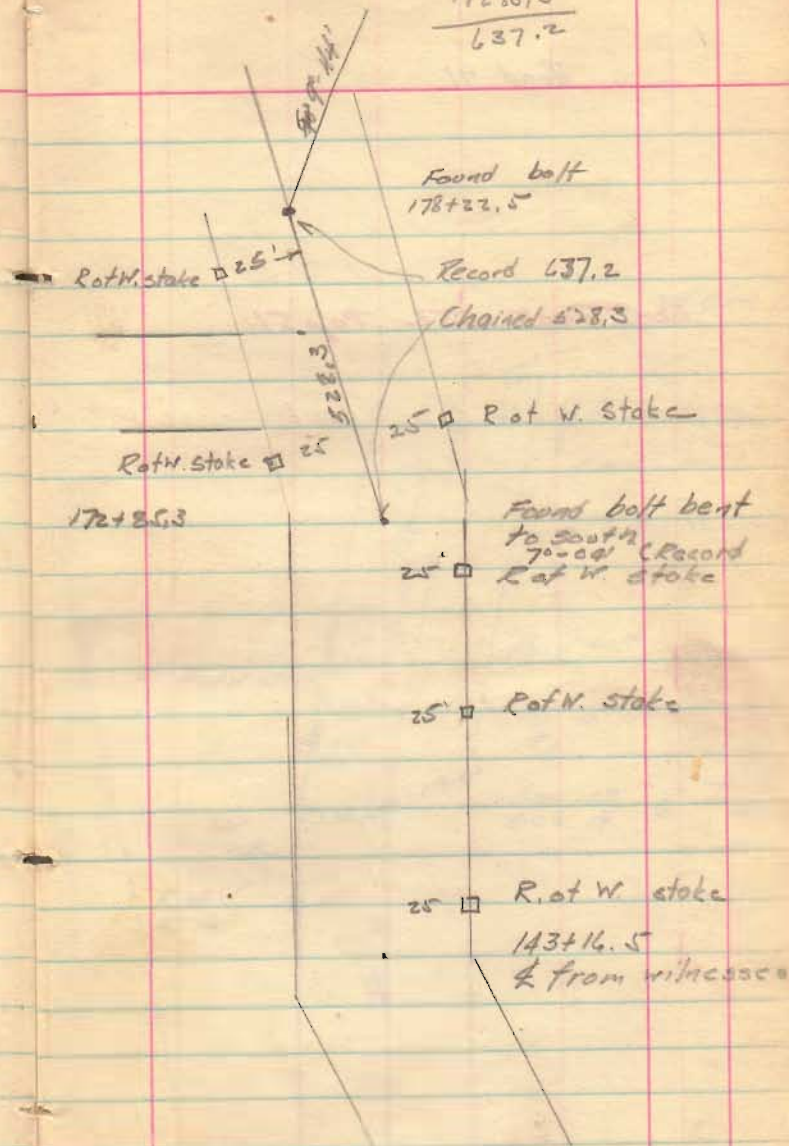 637.2
Found bolt
178+22.5
R of W. stake 25'
Record 637.2
Chained 528.3
528.3'
25 R of W. Stake
R of W. stake 25
172+85.3
Found bolt bent
to south
7°-04' (Record
25' R of W. stake
25' R of W. stake
25 R. of W. stake
143+16.5
℄ from witnesses